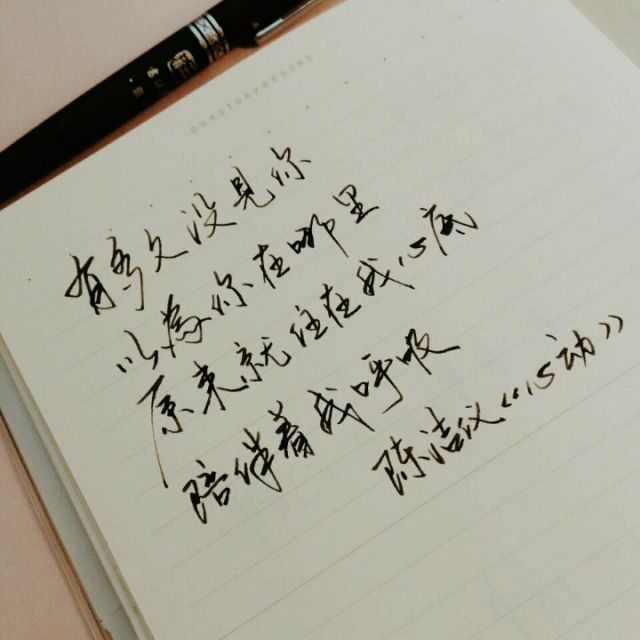 有多久没見你
以為你在哪里
原来就住在我心底
陪伴着我呼吸
陈洁仪《心动》